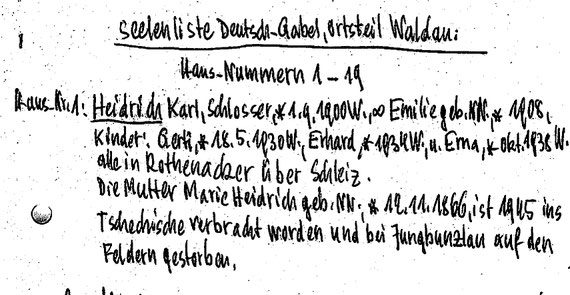 Seelenliste Deutsch-Gabel, Ortsteil Waldau:
Haus-Nummern 1 - 19
Haus-Nr.1: Heidrich Karl, Schlosser, * 1.9.1900 W., ∞ Emilie geb. NN., * 1908,
Kinder: Gerti, * 18.5.1930 W., Erhard, * 1934 W., u. Erna, * Okt. 1938 W.
alle in Rothenacker über Schleiz.
Die Mutter Marie Heidrich geb. NN., * 12.11.1866, ist 1945 ins
Tschechische verbracht worden und bei Jungbunzlau auf den
Feldern gestorben.